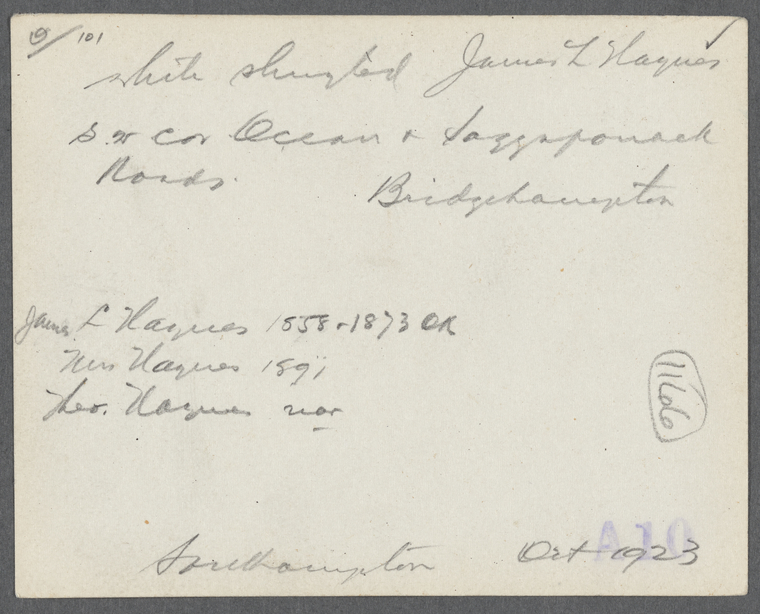 9/101
white shingled James L Haynes
S. W cor Ocean & Saggaponack
Roads.
Bridgehampton
James L Haynes 1858 - 1873 OK
Mrs Haynes 1891
Theo. Haynes nor
1166
Southampton Oct 1923
A10